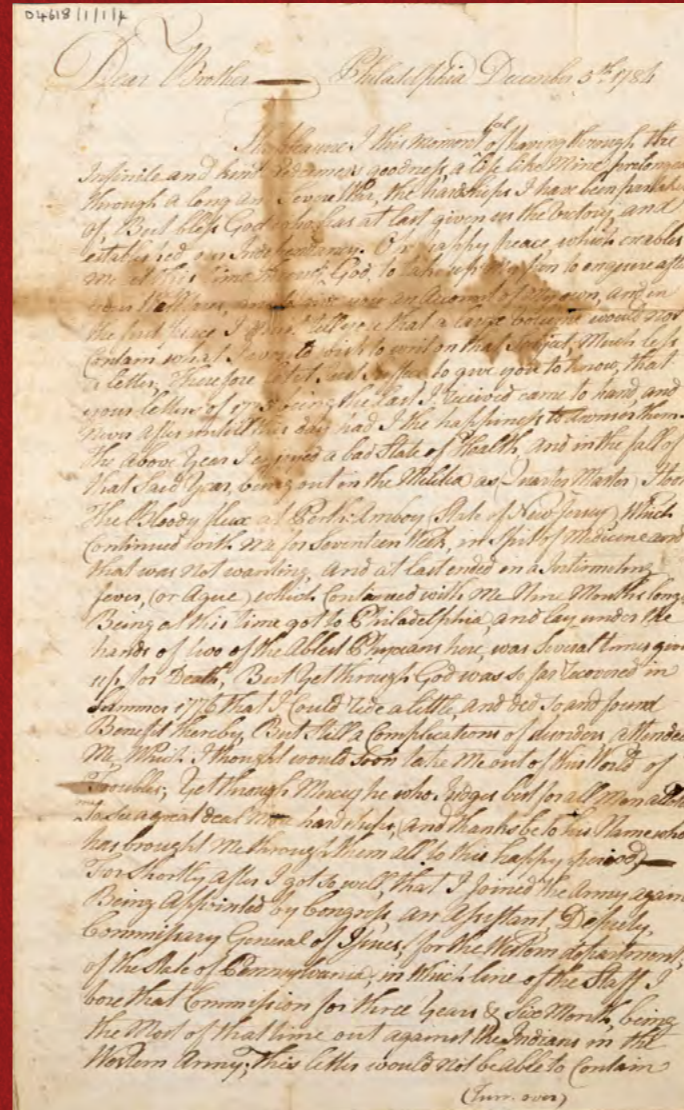 04618/1/1/1
Dear Brother — Philadelphia December 5th 1784
The pleasure I this moment of having through the
Infinite and kind goodness, a life like Mine prolonged
through a long and Severe War, the hardships I have been partaker
of, But bless God who has at last given us the Victory, and
established our Independancy. Our happy peace which enables
me at this time God, to take up my pen to enquire after
your Welfare, and give you an Account of my own, and in
the first place I must tell you that a large volume would not
Contain what I would wish to writ on that Subject, Much less
a letter, Therefore let it suffice to give you to know, that
your letters of 1775 being the last I received came to hand, and
never after untill this day had I the happiness to answer them.
the above Year I enjoyed a bad State of Health, and in the fall of
that said Year, being out in the Militia as Quarter Master, I took
The Bloody flux at Perth Amboy (State of New Jersey) Which
Continued with me for Seventeen Weeks, in Spite of Medicine and
that was not wanting, And at last ended in a
fever, (or Ague) which Continued with me Nine Months longer
Being at this time got to Philadelphia, and lay under the
hands of two of the Ablest here, was Several times given
up for Death, But Yet through God was so far recovered in
Summer 1776 that I Could ride a little, and did so and found
Benefit thereby, But Still a Complications of attended
Me, Which I thought would soon take Me out of this World of
Troubles, Yet through Mercy he who Judges best for all Men
me to see a great deal More hardships, and thanks be to his Name who
has brought me through them all to this happy period, —
For Shortly after I got so well, that I joined the Army again
Being Appointed by Congress an Assistant, Deputy,
Commissary General of Issues, for the Western department,
of the State of Pennsylvania, in Which line of the Staff I
bore that Commission for three Years & Six Month, being
the Most of that time out against the Indians in the
Western Army; This letter would not be able to Contain
(Turn over)